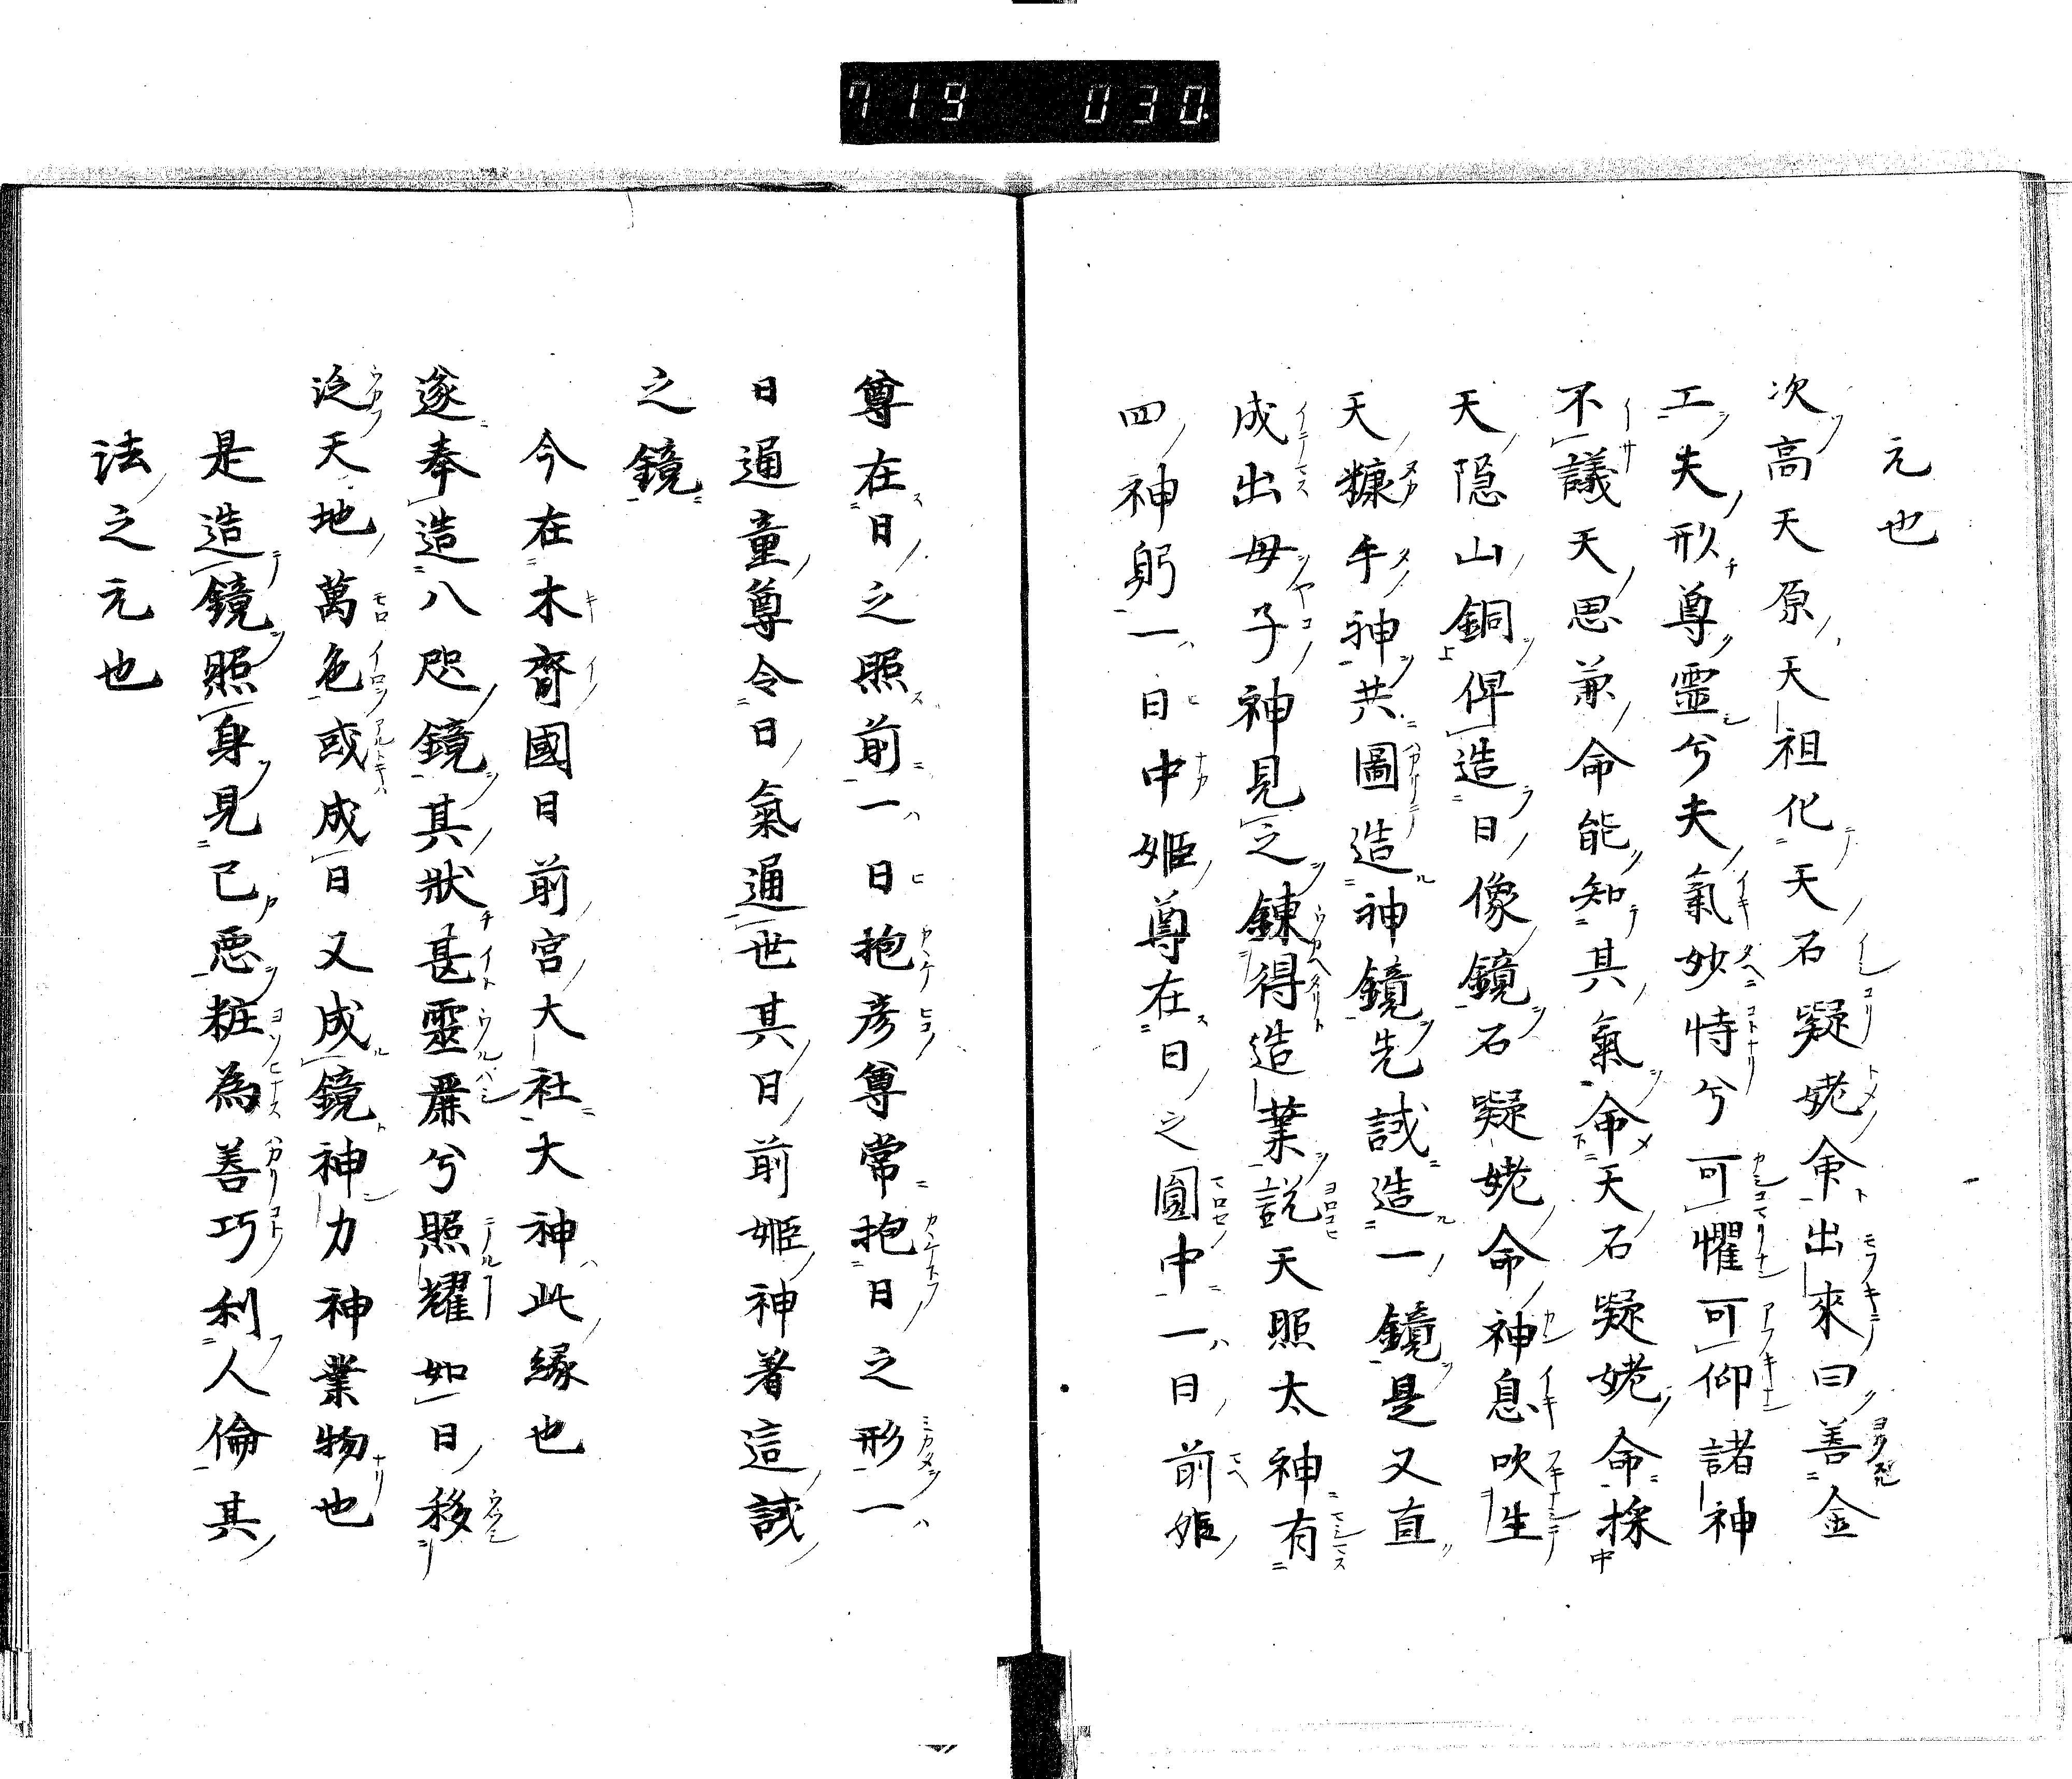 719 030.
元也
次高天原天祖化天石凝姥命出來曰善金
工夫形尊靈兮夫氣妙恃兮可懼可仰諸神
不議天思兼命能知其氣命天石凝姥命採
天隠山銅俾造日像鏡石凝姥命神息吹生
天糠手神共圖造神鏡先試造一鏡是又直
成出毋子神見之錬得造業説天照太神有
四神躬一日中姫尊在日之圓中一日前姫
尊在日之照前一日抱彦尊常抱日之形一
日通童尊令日氣通世其日前姫神著這試
之鏡
今在木齋國日前宮大社大神此縁也
遂奉造八咫鏡其狀甚靈麗兮照耀如日移
泛天地萬色或成日又成鏡神力神業物也
是造鏡照身見己惡粧為善巧利人倫其
法之元也